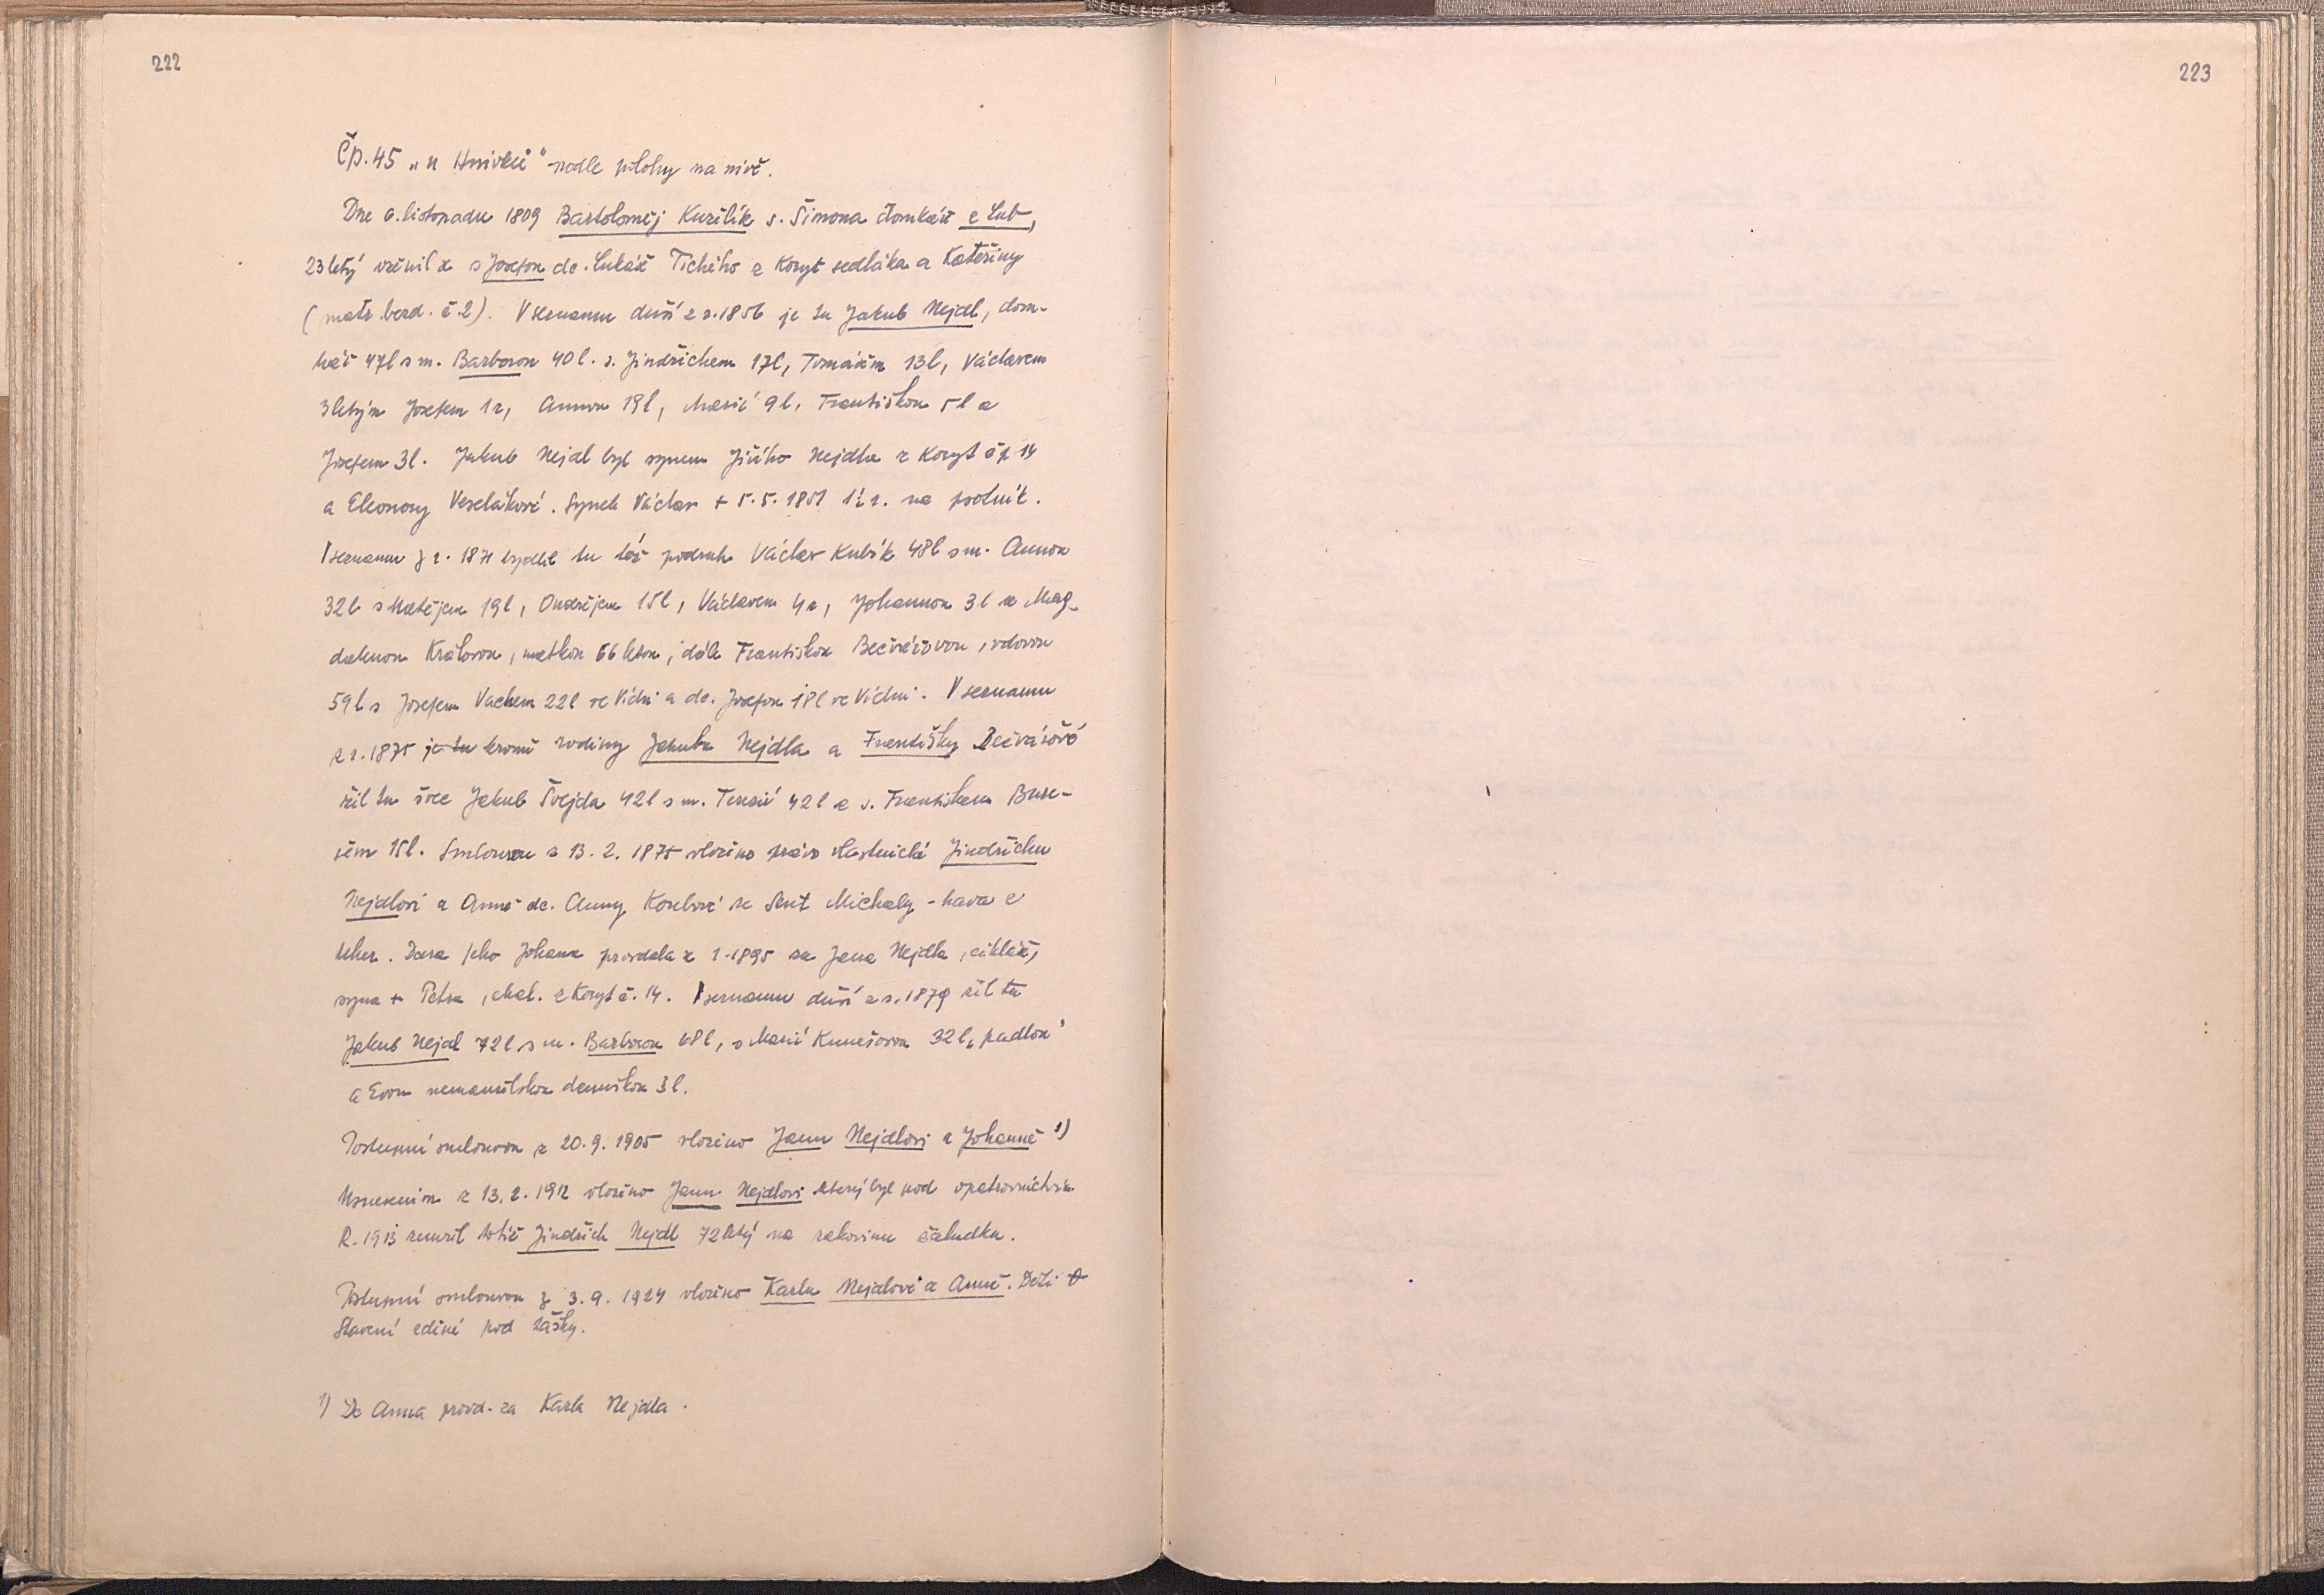 222
223
Čp. 45 „u Hnivků" podle polohy na nivě.
Dne 6. listopadu 1809 Bartoloměj Kuželík s. Šimona domkáře z Lub,
23letý oženil se s Josefou dc. Lukáše Tichého z Koryt sedláka a Kateřiny
(matr. berd. č. 2). V seznamu duší z r. 1856 je tu Jakub Nejdl, dom-
kář 47l s m. Barborou 40 l. s. Jindřichem 17l, Tomášem 13l, Václavem
3letým Josefem 1r, Annou 19l, Marií 9l, Františkou 5l a
Josefem 3l. Jakub Nejdl byl synem Jiřího Nejdla z Koryt čp 14
a Eleonory Veselákové. Synek Václav + 5.5.1851 1½ r. na psotník.
V seznamu z r. 1871 bydlil tu též podruh Václav Kubík 48l s m. Annou
32l s Matějem 19l, Ondřejem 15l, Václavem 4r, Johannou 3l a Mag-
dalenou Královou, matkou 66letou, dále Františkou Bečvářovou, vdovou
59l s Josefem Vachem 22l ve Vídni a dc. Josefou 18l ve Vídni. V seznamu
z r. 1875 je tu kromě rodiny Jakuba Nejdla a Františky Bečvářové
žil tu švec Jakub Švejda 42l s m. Terezií 42l a s. Františkem Bure-
šem 15l. Smlouvou z 13.2.1875 vloženo právo vlastnické Jindřichu
Nejdlovi a Anně dc. Anny Koubové ze Sent Michaly-hava z
Uher. Dcera jeho Johana provdala r. 1895 za Jana Nejdla, cihláře,
syna + Petra, chal. z Koryt č. 14. V seznamu duší z r. 1879 žil tu
Jakub Nejdl 72l s m. Barborou 68l, s Marií Kunešovou 32l „padlou"
a Evou nemanželskou dceruškou 3l.
Postupní smlouvou z 20.9.1905 vloženo Janu Nejdlovi a Johanně 1)
Usnesením z 13.2.1912 vloženo Janu Nejdlovi který byl pod opatrovnictvím
R. 1913 zemřel totiž Jindřich Nejdl 72letý na rakovinu žaludku.
Postupní smlouvou z 3.9.1924 vloženo Karlu Nejdlovi a Anně. Děti
Stavení zděné pod tašky.
1) Dc Anna provd. za Karla Nejdla.